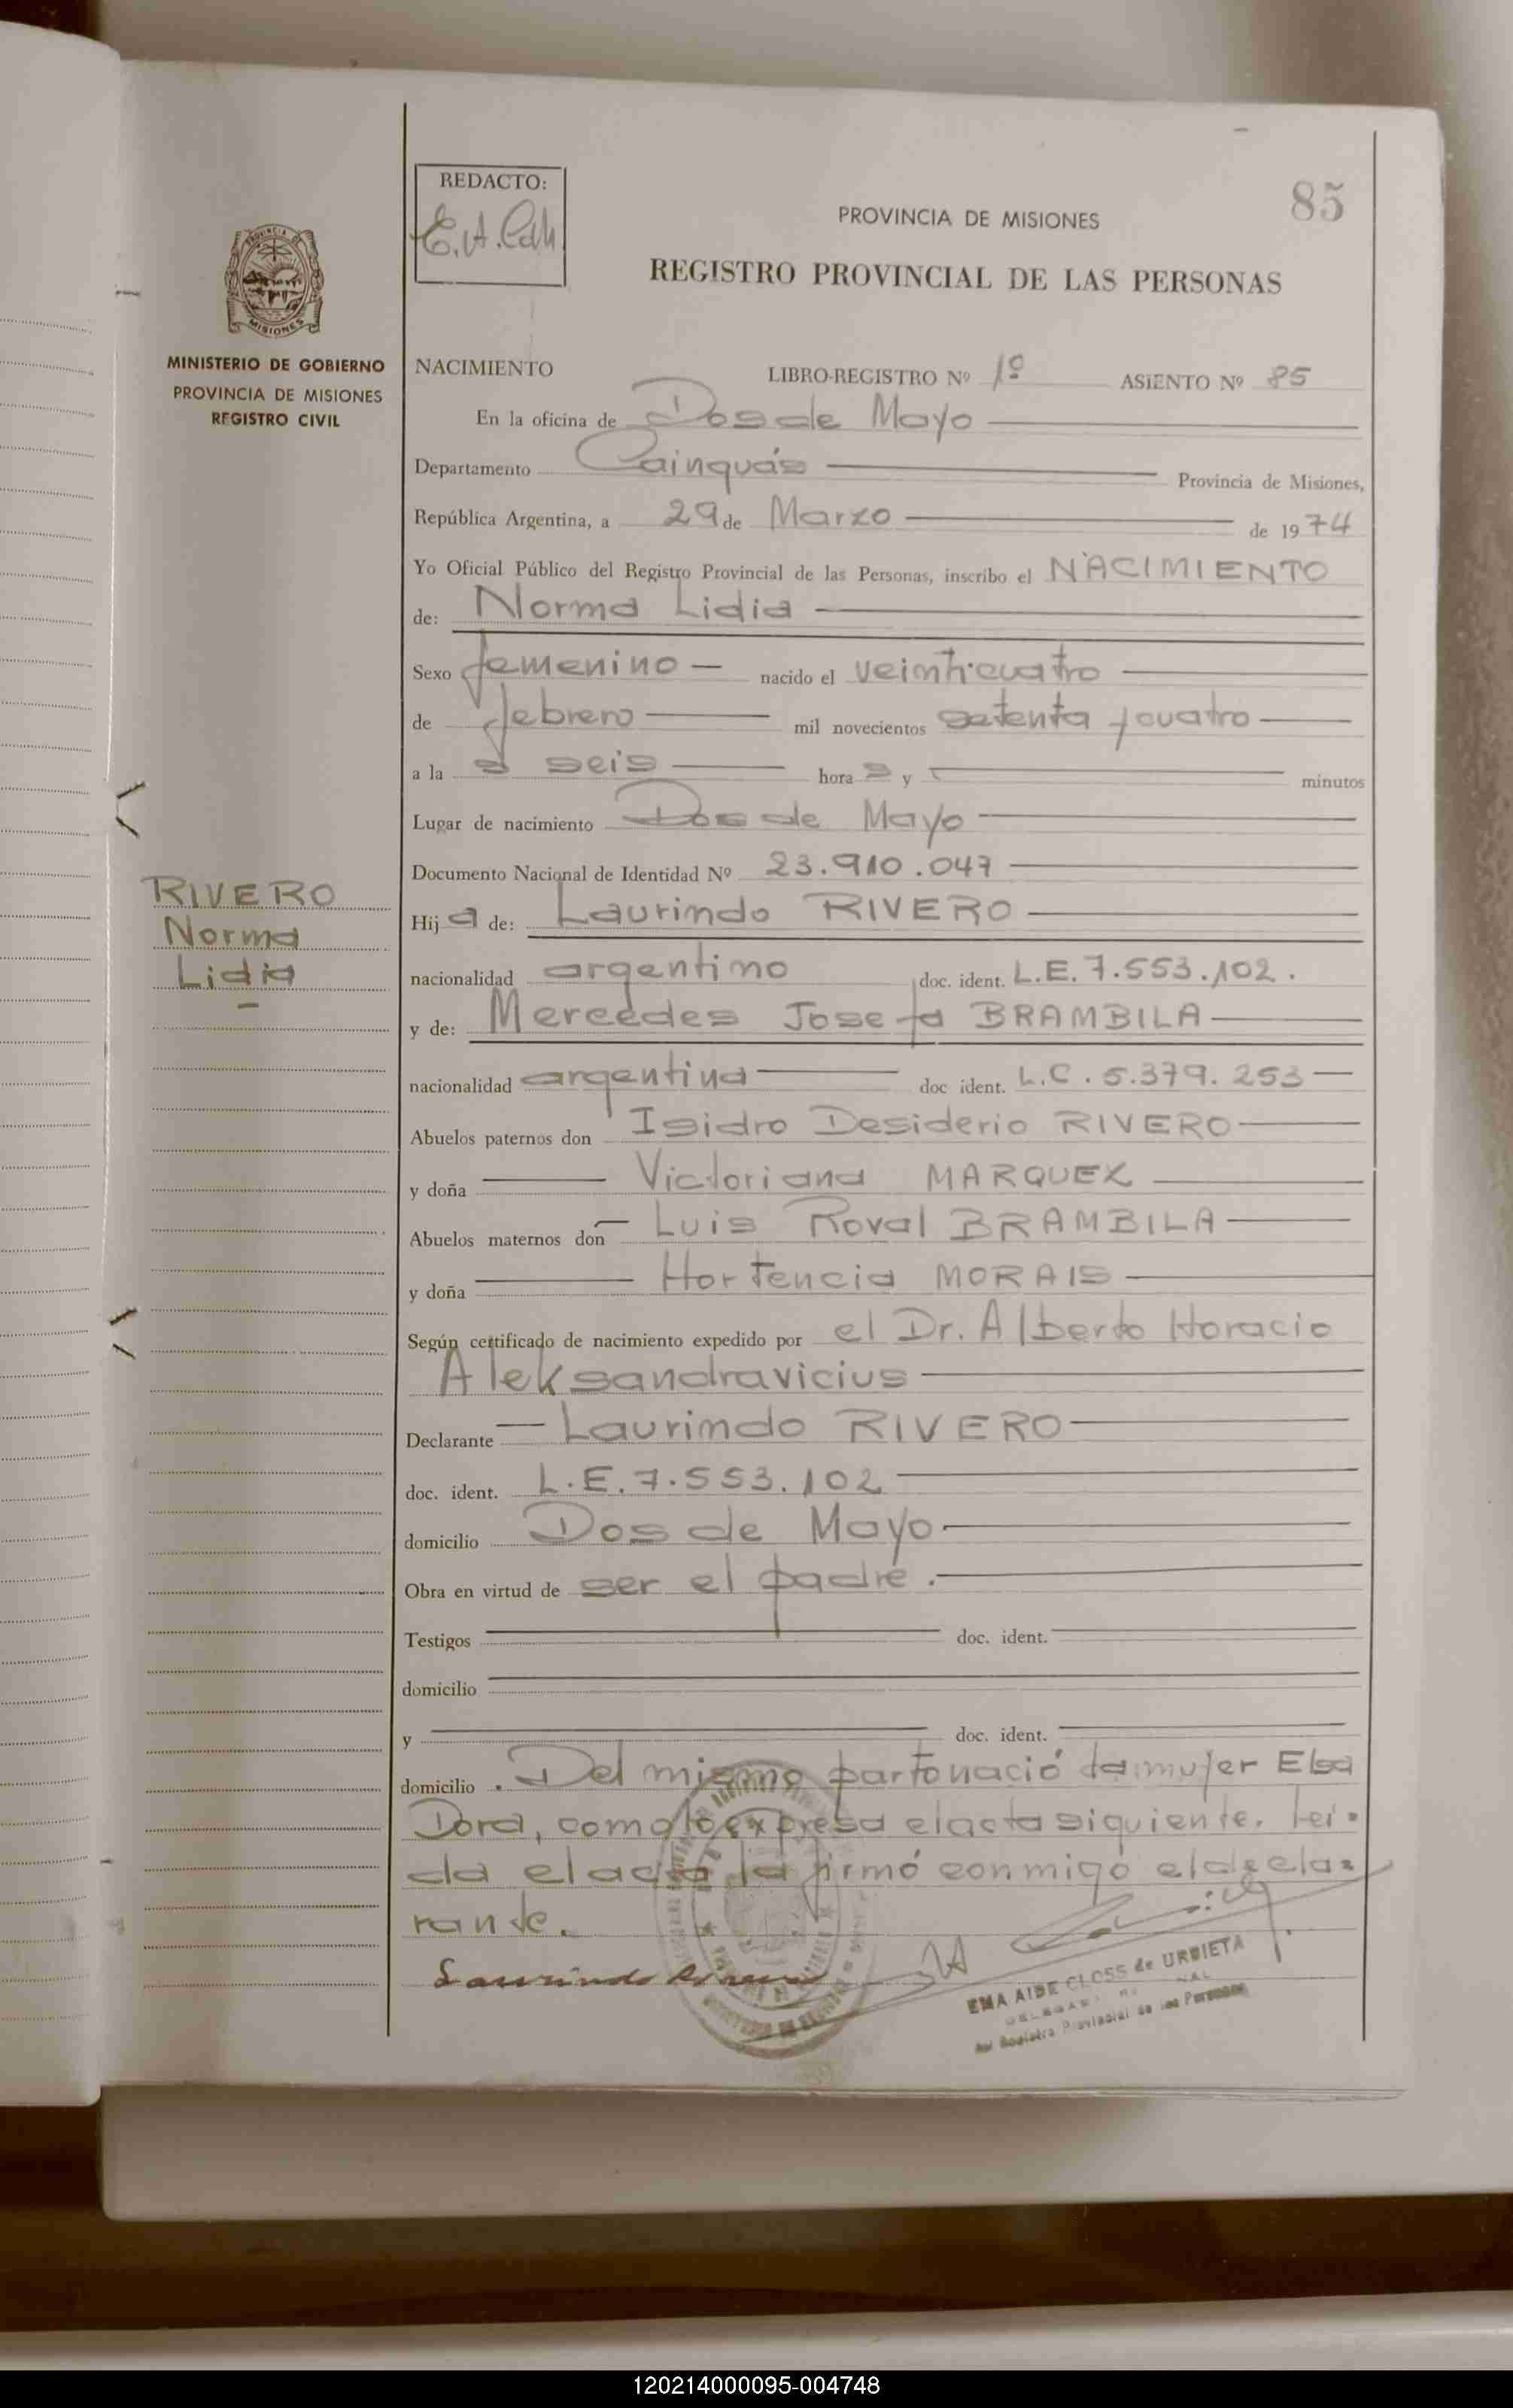 REDACTO:
85
PROVINCIA DE MISIONES
REGISTRO PROVINCIAL DE LAS PERSONAS
PROVINCIA DE
MISIONES
MINISTERIO DE GOBIERNO
PROVINCIA DE MISIONES
REGISTRO CIVIL
NACIMIENTO LIBRO-REGISTRO Nº 1º ASIENTO Nº 85
En la oficina de Dos de Mayo
Departamento Cainguás Provincia de Misiones,
República Argentina, a 29 de Marzo de 1974
Yo Oficial Público del Registro Provincial de las Personas, inscribo el NACIMIENTO
de: Norma Lidia
Sexo femenino nacido el veinticuatro
de febrero mil novecientos setenta y cuatro
a la s seis hora s y minutos
Lugar de nacimiento Dos de Mayo
Documento Nacional de Identidad Nº 23.910.047
RIVERO
Norma
Lidia
Hij a de: Laurindo RIVERO
nacionalidad argentino doc. ident. L.E. 7.553.102.
y de: Mercedes Josefa BRAMBILA
nacionalidad argentina doc ident. L.C. 5.379.253
Abuelos paternos don Isidro Desiderio RIVERO
y doña Victoriana MARQUEZ
Abuelos maternos don Luis Roval BRAMBILA
y doña Hortencia MORAIS
Según certificado de nacimiento expedido por el Dr. Alberto Horacio
Aleksandravicius
Declarante Laurindo RIVERO
doc. ident. L.E. 7.553.102
domicilio Dos de Mayo
Obra en virtud de ser el padre.
Testigos doc. ident.
domicilio
y doc. ident.
domicilio . Del mismo parto nació la mujer Elsa
Dora, como lo expresa el acta siguiente. Leí-
da el acta la firmó conmigo el decla=
rante.
Laurindo Rivero
EMA AIDE CLOSS de URBIETA
del Registro Provincial de las Personas
120214000095-004748